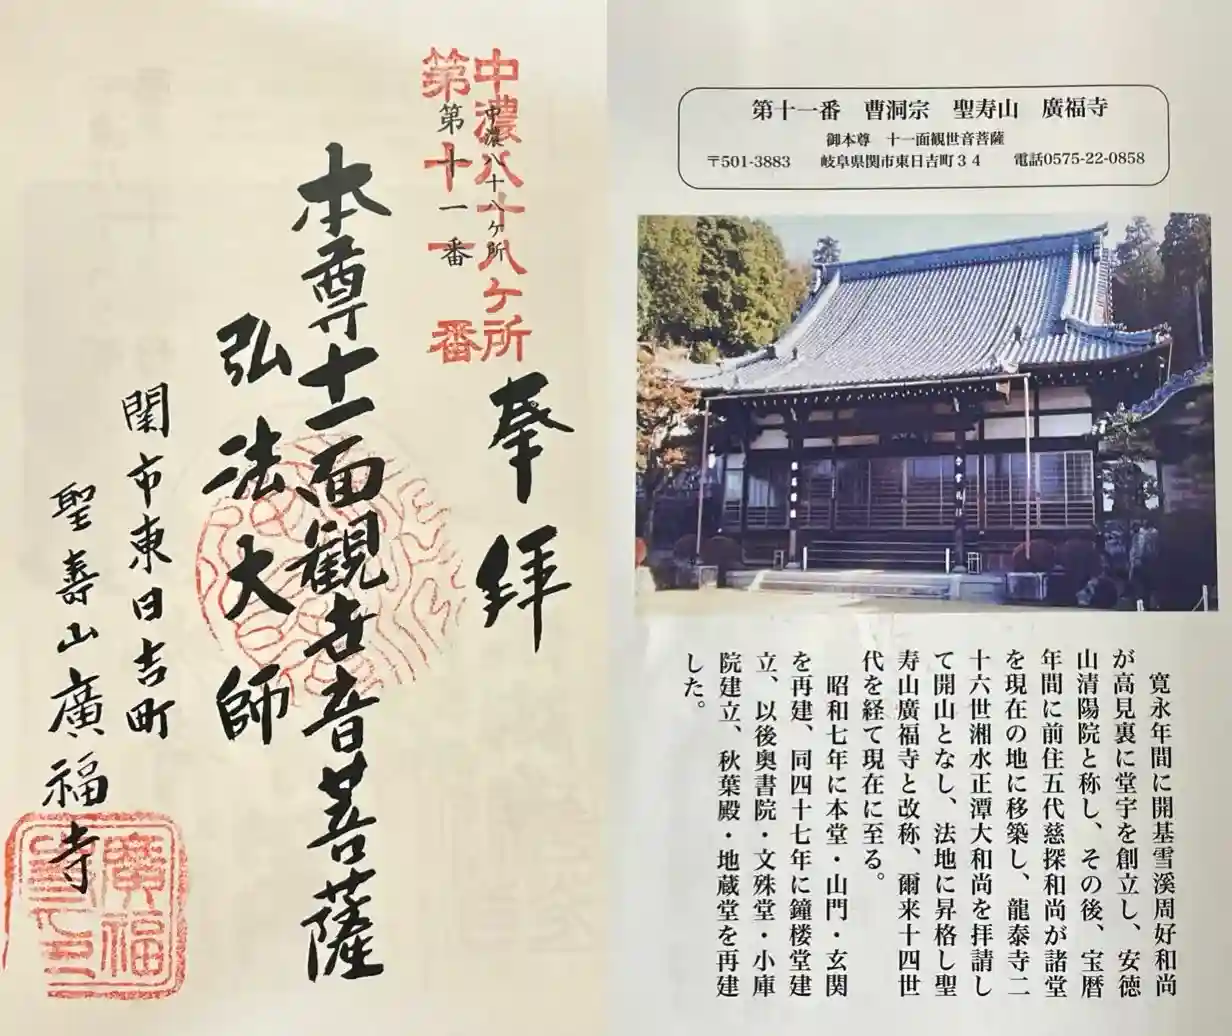 中濃八十八ケ所
第十一番
中濃八十八ヶ所
第十一番
奉拝
本尊十一面観世音菩薩
弘法大師
関市東日吉町
聖寿山廣福寺
第十一番 曹洞宗 聖寿山 廣福寺
御本尊 十一面観世音菩薩
〒501-3883 岐阜県関市東日吉町34 電話0575-22-0858
寛永年間に開基雪溪周好和尚
が高見裏に堂宇を創立し、安徳
山清陽院と称し、その後、宝暦
年間に前住五代慈探和尚が諸堂
を現在の地に移築し、龍泰寺二
十六世湘水正潭大和尚を拝請し
て開山となし、法地に昇格し聖
寿山廣福寺と改称、爾来十四世
代を経て現在に至る。
昭和七年に本堂・山門・玄関
を再建、同四十七年に鐘楼堂建
立、以後奥書院・文殊堂・小庫
院建立、秋葉殿・地蔵堂を再建
した。